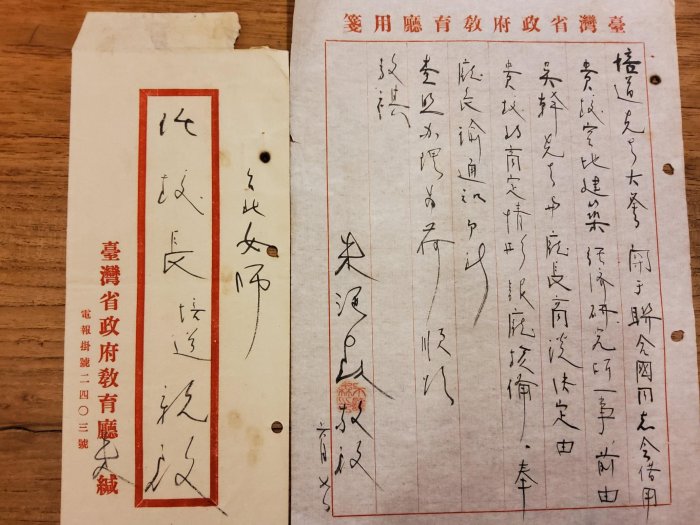 臺灣省政府敎育廳用箋
培道先生大鑒 關于聯合國同志會借用
貴校空地建築經濟研究所一事前由
吳幹先生與廳長商談決定由
貴校將商定情形報廳核備。奉
廳長諭通知
查照辦理為荷 順頌
教祺
朱匯森敬啟
台北女師
任校長培道親啟
臺灣省政府敎育廳朱緘
電報掛號二四〇三號